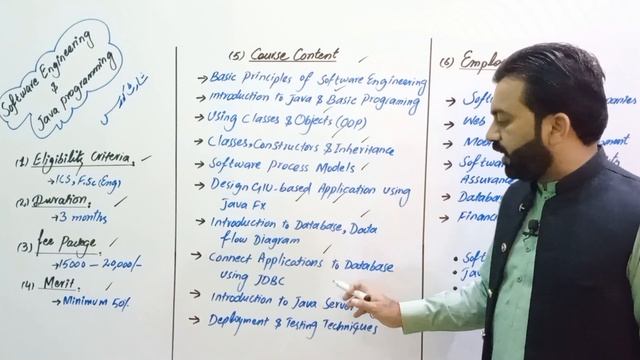 Software Engineering
&
Java programming
شارٹ کورس
(1) Eligibility Criteria.
→ ICS, F.Sc (Eng)
(2) Duration.
→ 3 months
(3) fee Package
→ 15000 - 20,000/-
(4) Merit.
→ Minimum 50%
(5) Course Content
→ Basic Principles of Software Engineering
→ Introduction to Java & Basic Programing
→ Using Classes & Objects (OOP)
→ Classes, Constructors & Inheritance
→ Software Process Models
→ Design GUI-based Application using
Java Fx
→ Introduction to Database, Data
flow Diagram
→ Connect Applications to Database
using JDBC
→ Introduction to Java Server
→ Deployment & Testing Techniques
(6)
→
→ Web
→
→
Assurance
→
→
•
•